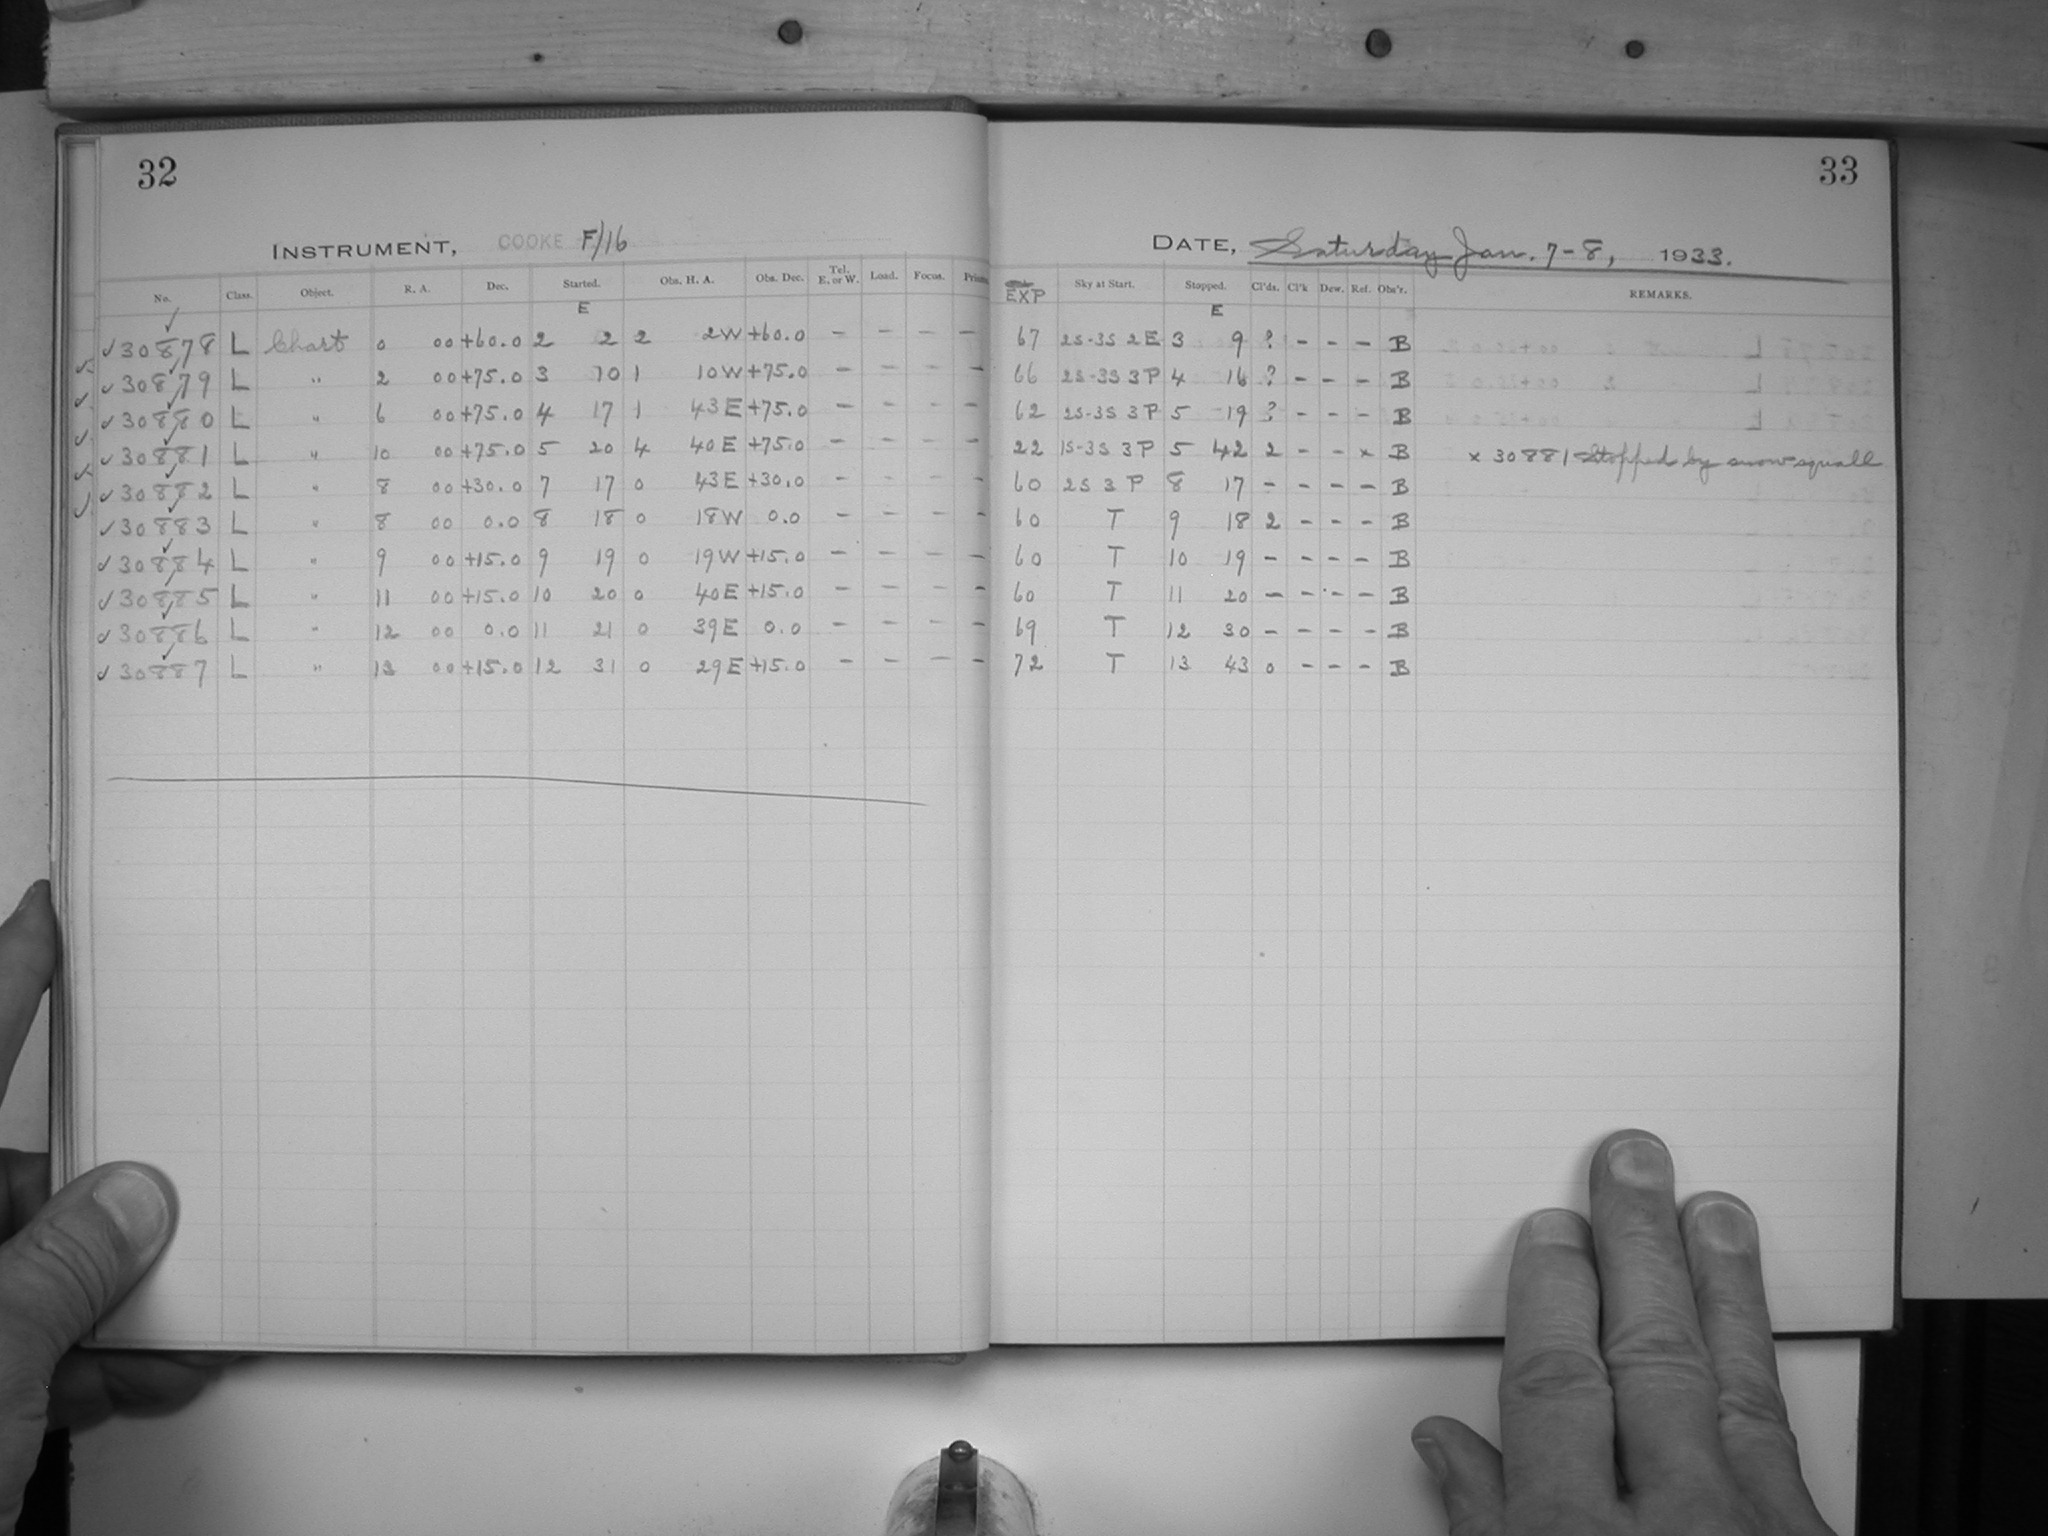 32
INSTRUMENT, COOKE F/16
No. Class. Object. R. A. Dec. Started. Obs. H. A. Obs. Dec. Tel. E. or W. Load. Focus.
E
✓30878 L Chart 0 00 +60.0 2 2 2 2W +60.0 - - - -
✓30879 L " 2 00 +75.0 3 10 1 10W +75.0 - - - -
✓30880 L " 6 00 +75.0 4 17 1 43E +75.0 - - - -
✓30881 L " 10 00 +75.0 5 20 4 40E +75.0 - - - -
✓30882 L " 8 00 +30.0 7 17 0 43E +30.0 - - - -
✓30883 L " 8 00 0.0 8 18 0 18W 0.0 - - - -
✓30884 L " 9 00 +15.0 9 19 0 19W +15.0 - - - -
✓30885 L " 11 00 +15.0 10 20 0 40E +15.0 - - - -
✓30886 L " 12 00 0.0 11 21 0 39E 0.0 - - - -
✓30887 L " 13 00 +15.0 12 31 0 29E +15.0 - - - -
33
DATE, Saturday Jan. 7-8, 1933.
EXP Sky at Start. Stopped. Cl'ds. Cl'k Dew. Ref. Obs'r. REMARKS.
E
67 2S-3S 2E 3 9 ? - - - B
66 2S-3S 3P 4 16 ? - - - B
62 2S-3S 3P 5 19 ? - - - B
22 1S-3S 3P 5 42 2 - - x B x 30881 Stopped by snow squall
60 2S 3P 8 17 - - - - B
60 T 9 18 2 - - - B
60 T 10 19 - - - - B
60 T 11 20 - - - - B
69 T 12 30 - - - - B
72 T 13 43 0 - - - B